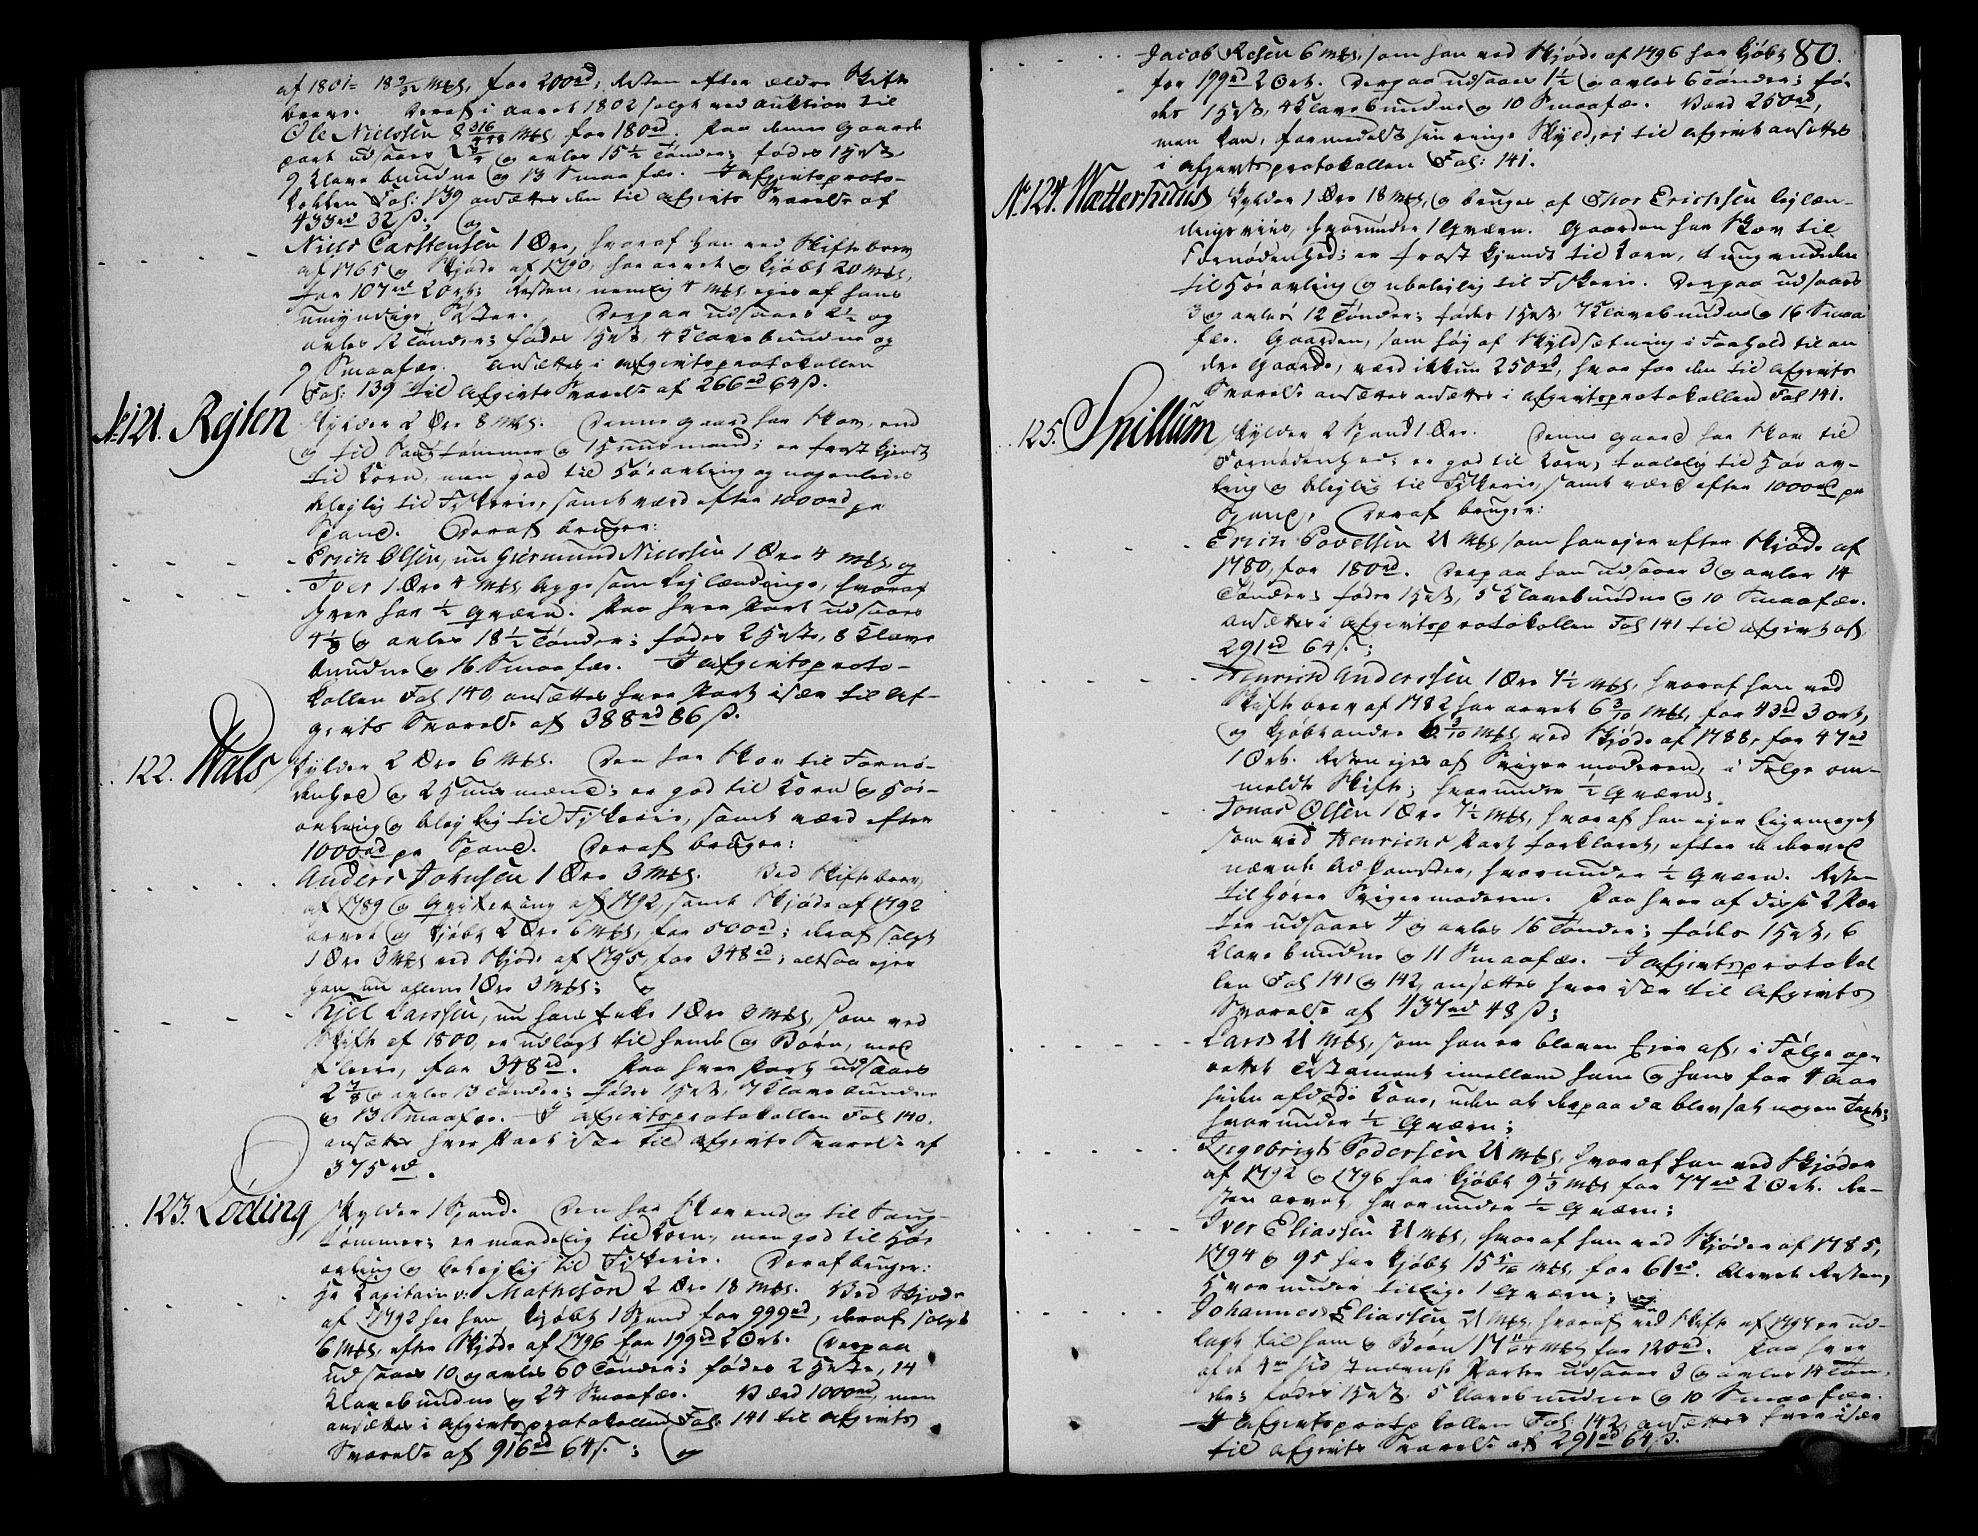 af 1801 18 2/32 Mkl, for 200rd, Resten efter ældre Skifte
breve. Deraf i aaret 1802 solgt ved Auktion til
Ole Nielssen 8 316/448 Mkl for 180rd. Paa denne Gaarde
part udsaaes 2 3/4 og avles 15 1/2 Tønder; fødes 1 Hest,
9 Klavebundne og 13 Smaafæe. I Afgivtsproto-
kollen Fol: 139 ansættes den til Afgivts Svarelse af
433rd 32 ß; og
Niels Carstensen 1 Øre, hvoraf han ved Skiftebrev
af 1765 og Skjøde af 1790, har arvet og kjøbt 20 Mkl,
for 107rd 2 Ort; Resten, nemlig 4 Mkl ejes af hans
umyndige Søster. Derpaa udsaaes 2 1/2 og
avles 12 Tønder; fødes 1 Hest, 4 Klavebundne og
9 Smaafæe. Ansættes i Afgivtsprotokollen
Fol: 139 til Afgivts Svarelse af 266rd 64 ß.
No 121. Rejten skylder 2 Øre 8 Mkl. Denne Gaard har Skov, end
og til Saugtømmer og 1 Huusmand; er frost kjendt
til Korn, men god til Høeavling og nogenlunde
belejlig til Fiskerie, samt værd efter 1000rd pr
Spand. Deraf bruger:
Erich Olsen, nu Giermund Nielssen 1 Øre 4 Mkl, og
Iver 1 Øre 4 Mkl begge som Lejlændinge, hvoraf
hver har 1/2 Qværn. Paa hver Part udsaaes
4 1/8 og avles 18 1/2 Tønder; fødes 2 Heste, 8 Klave
bundne og 16 Smaafæe. I Afgivtsproto-
kollen Fol 140, ansættes hver Part især til Af-
givts Svarelse af 388rd 86 ß.
122. Hals skylder 2 Øre 6 Mkl. Den har Skov til Fornø-
denhed og 2 Huusmænd; er god til Korn og Høe-
avling og belejlig til Fiskerie, samt værd efter
1000rd pr Spand. Deraf bruger:
Anders Johnsen 1 Øre 3 Mkl. Ved Skiftebrev
af 1789 og af 1792, samt Skjøde af 1792
arvet og kjøbt 2 Øre 6 Mkl, for 500rd; deraf solgt
1 Øre 3 Mkl ved Skjøde af 1795, for 348rd; altsaa ejer
han nu allene 1 Øre 3 Mkl; og
Kjel Larssen, nu hans Enke 1 Øre 3 Mkl, som ved
Skifte af 1800, er udlagt til hende og Børn, med
fleere, for 348rd. Paa hver Part udsaaes
2 7/8 og avles 13 Tønder; fødes 1 Hest, 7 Klavebundne
og 13 Smaafæe. I Afgivtsprotokollen Fol 140,
ansættes hver Part især til Afgivts Svarelse af
375rd.
123. Løding skylder 1 Spand. Den har Skov endog til Saug-
tømmer; er maadelig til Korn, men god til Høe
avling og belejlig til Fiskerie. Deraf bruger:
Hr Capitain v: Matheson 2 Øre 18 Mkl. Ved Skjøde
af 1792 har han kjøbt 1 Spand for 999rd, deraf solgt
6 Mkl, efter Skjøde af 1796 for 199rd 2 Ort. Derpaa
udsaaes 10 og avles 60 Tønder; fødes 2 Heste, 14
Klavebundne og 24 Smaafæe. Værd 1000rd, men
ansættes i Afgivtsprotokollen Fol: 141 til Afgivts
Svarelse af 916rd 64 ß.; og
80.
Jacob Resen 6 Mkl, som han ved Skjøde af 1796 har kjøbt
for 199rd 2 Ort. Derpaa udsaaes 1 1/2 og avles 6 Tønder; fø-
des 1 Hest, 4 Klavebundne og 10 Smaafæe. Værd 250rd,
men kan, formedelst sin ringe Skyld, ej til Afgivt ansættes
i Afgivtsprotokollen Fol: 141.
No 124. Watterhuus skylder 1 Øre 18 Mkl, og bruges af Thor Erichsen lejlæn-
dingsviis, hvorunder 1 Qværn. Gaarden har Skov til
Fornødenhed; er frost kjendt til Korn,
til Høeavling og ubelejlig til Fiskerie. Derpaa udsaaes
3 og avles 12 Tønder; fødes 1 Hest, 7 Klavebundne og 16 Smaa
fæe. Gaarden, som høj af Skyldsætning i Forhold til an
dre Gaarde, værd ikkun 250rd, hvor for den til Afgivts
Svarelse ansættes ansættes i Afgivtsprotokollen Fol 141.
125. Spillum skylder 2 Spand 1 Øre. Denne Gaard har Skov til
Fornødenhed; er god til Korn, taalelig til Høeav-
ling og belejlig til Fiskerie, samt værd efter 1000rd pr
Spand. Deraf bruger:
Erich Povelsen 21 Mkl som han ejer efter Skjøde af
1780, for 180rd. Derpaa han udsaaer 3 og avler 14
Tønder; føder 1 Hest, 5 Klavebundne og 10 Smaafæe.
Ansættes i Afgivtsprotokollen Fol 141 til Afgivt af
291rd 64 ß.;
Henrich Anderssen 1 Øre 7 1/2 Mkl, hvoraf han ved
Skiftebrev af 1782 har arvet 6 3/10 Mkl, for 43rd 3 Ort,
og kjøbt andre 6 3/10 Mkl ved Skjøde af 1788, for 47rd
1 Ort. Resten ejes af Svigermoderen, i Følge om-
meldte Skifte; hvorunder 1/2 Qværn;
Jonas Olsen 1 Øre 7 1/2 Mkl, hvoraf han ejer ligemeget
som ved Henrichs Part forklaret, efter de derved
nævnte Adkomster, hvorunder 1/2 Qværn. Resten
tilhører Svigermoderen. Paa hver af disse 2 Par
ter udsaaes 4 og avles 16 Tønder; fødes 1 Hest, 6
Klavebundne og 11 Smaafæe. I Afgivtsprotokol
len Fol 141 og 142, ansættes hver især til Afgivts
Svarelse af 437rd 48 ß;
Lars 21 Mkl, som han er bleven Ejer af, i Følge op-
rettet Testament imellem ham og hans for 4 Aar
siden afdøde Kone, uden at derpaa da blev sat nogen Taxt;
hvorunder 1/2 Qværn;
Ingebrigt Pedersen 21 Mkl, hvoraf han ved Skjøder
af 1792 og 1796 har kjøbt 9 1/3 Mkl for 77rd 2 Ort. Re-
sten arvet, hvorunder 1/2 Qværn;
Iver Eliassen 21 Mkl, hvoraf han ved Skjøder af 1785,
1794 og 95 har kjøbt 15 5/16 Mkl for 61rd. Arvet Resten,
hvorunder tillige 1 Qværn; og
Johannes Eliassen 21 Mkl, hvoraf ved Skifte af 1797 er ud-
lagt til ham og Børn 17 11/64 Mkl for 120rd. Paa hver
af de 4re sidstnævnte Parter udsaaes 3 og avles 14 Tøn-
der; fødes 1 Hest, 5 Klavebundne og 10 Smaafæe.
I Afgivtsprotokollen Fol: 142, ansættes hver især
til Afgivts Svarelse af 291rd 64 ß.